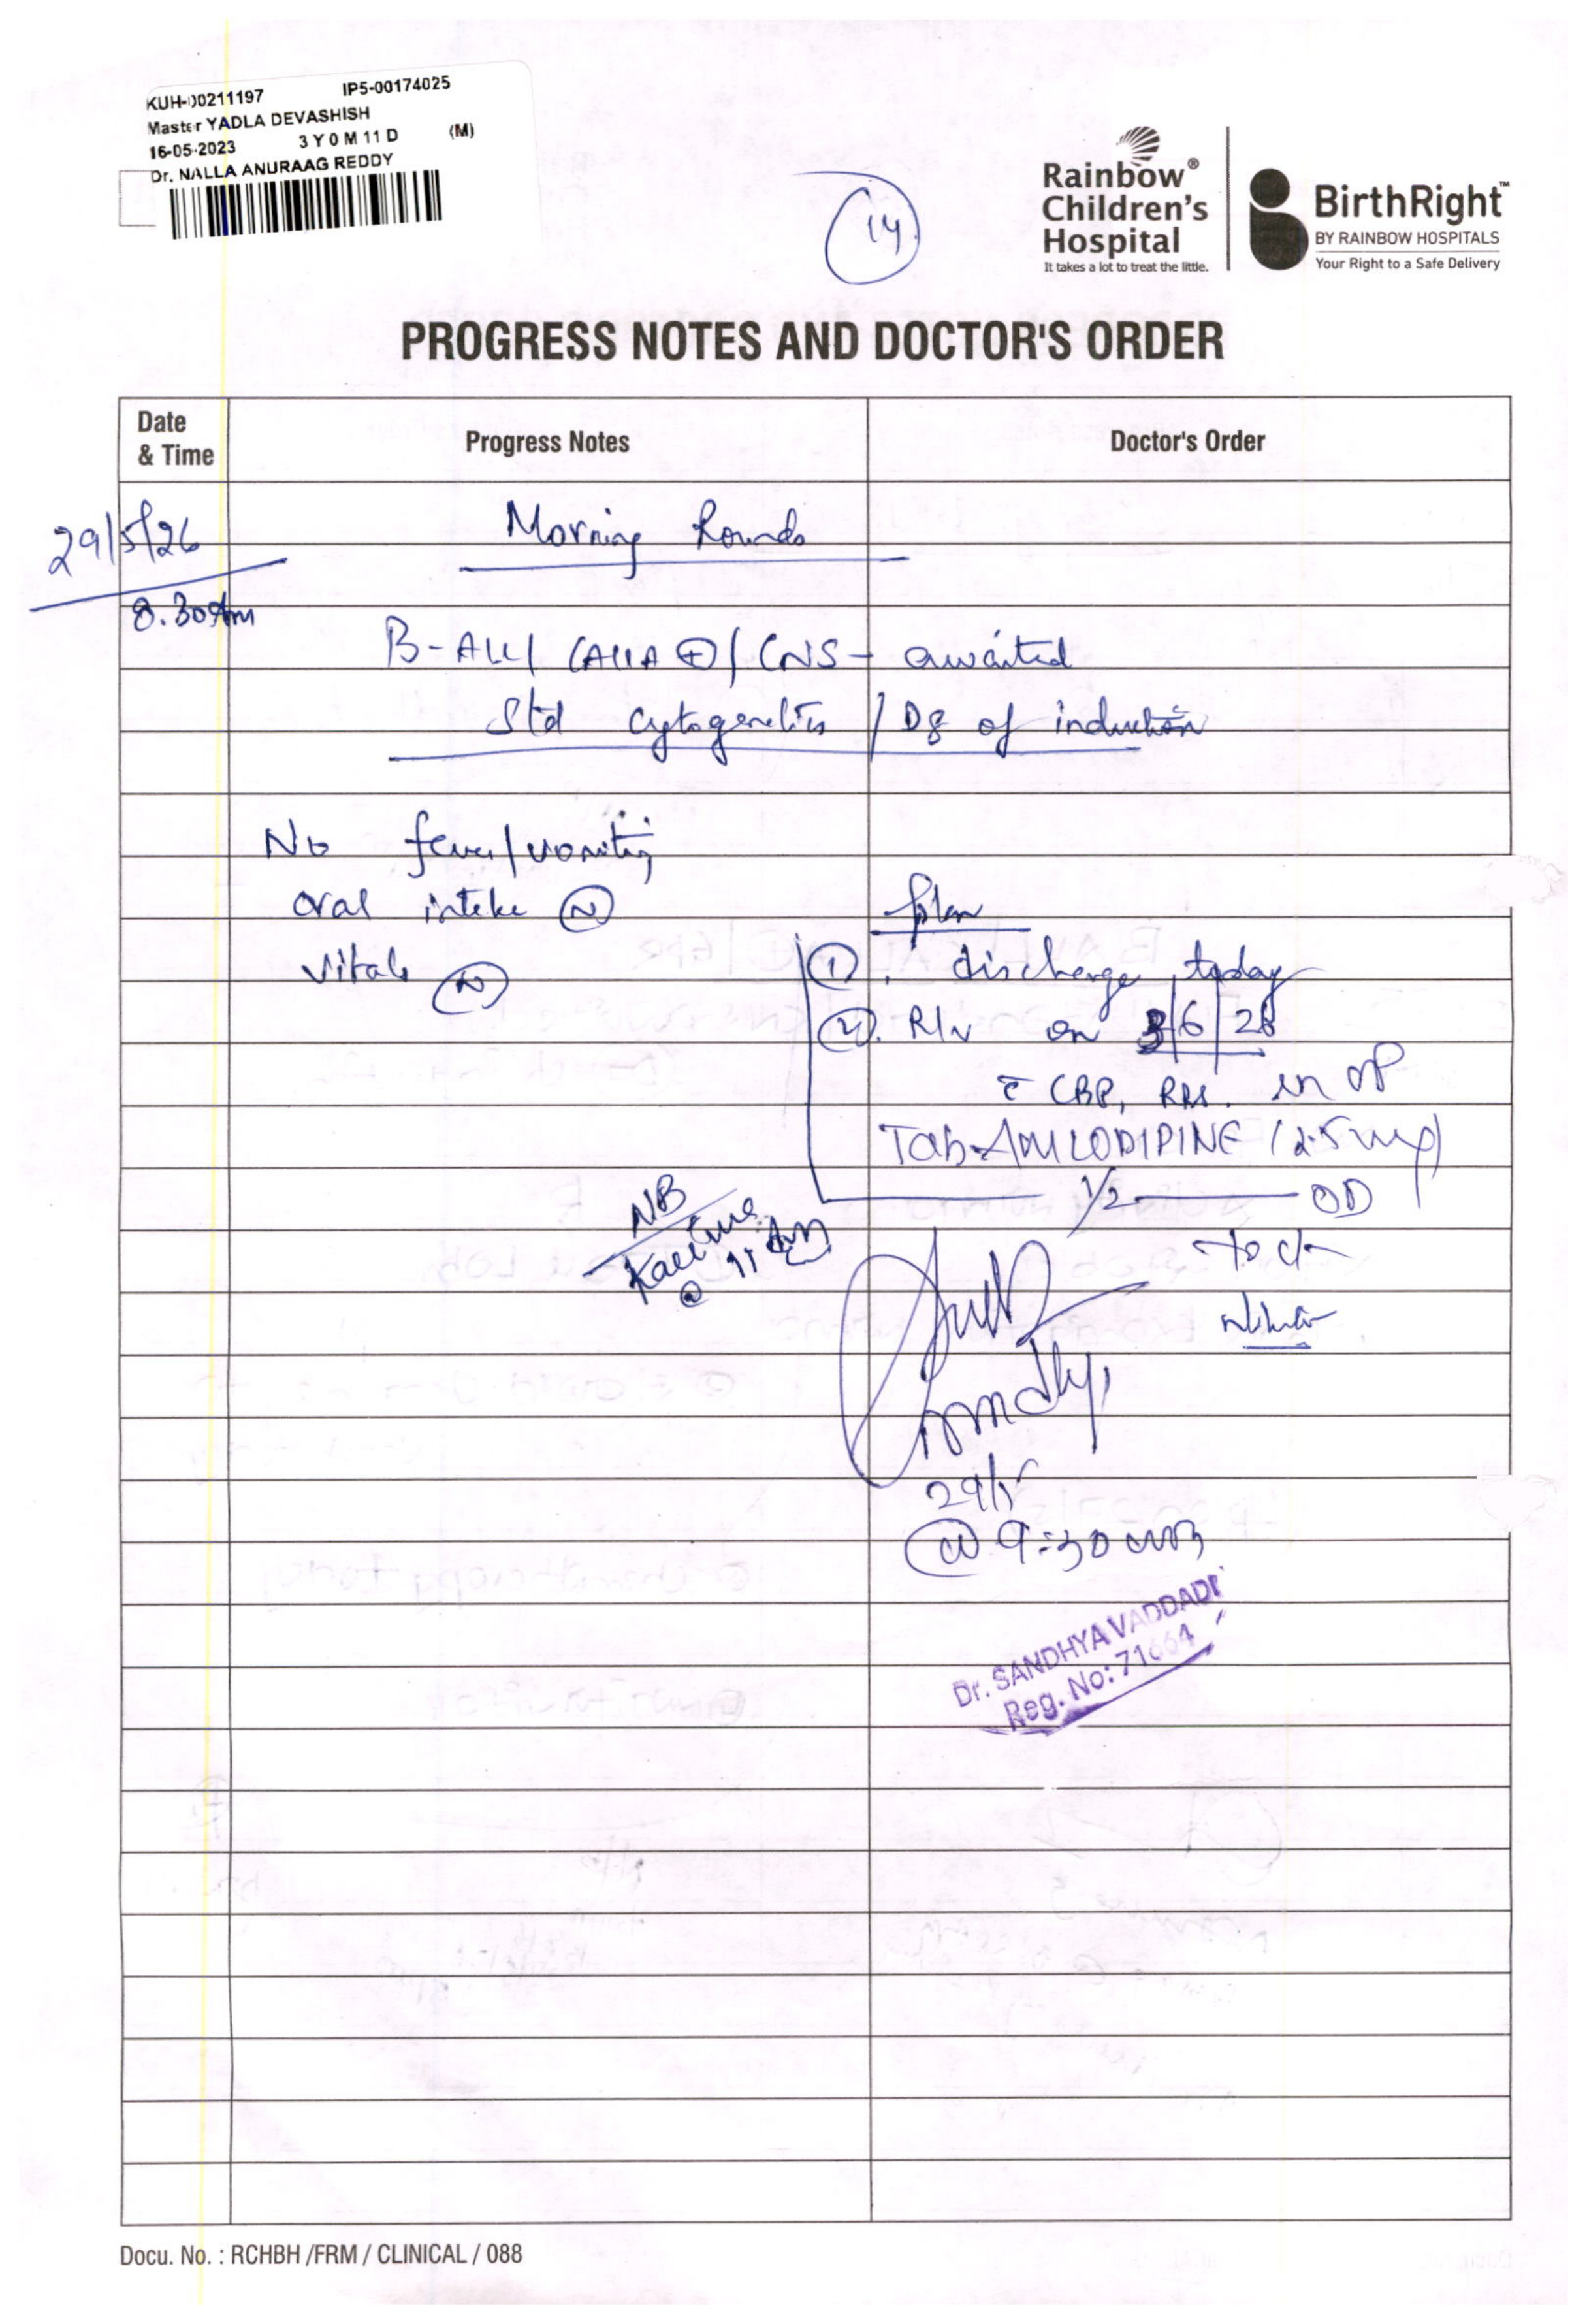 KUH-00211197 IP5-00174025
Master YADLA DEVASHISH
16-05-2023 3 Y 0 M 11 D (M)
Dr. NALLA ANURAAG REDDY
14
Rainbow®
Children's
Hospital
It takes a lot to treat the little.
BirthRight™
BY RAINBOW HOSPITALS
Your Right to a Safe Delivery
PROGRESS NOTES AND DOCTOR'S ORDER
Date
& Time
Progress Notes
Doctor's Order
29/5/26
8.30Am
Morning Rounds
B-ALL / CALLA ⊕ / CNS - awaited
Std cytogenetics / D8 of induction
No fever/vomiting
oral intake Ⓝ
Vitals Ⓝ
Plan
①. discharge today
②. R/v on 3/6/26
c̄ CBP, in OP
Tab. AMLODIPINE (2.5mg)
1/2 OD
NB
@ 11 Am
29/5
@ 9:30 am
Dr. SANDHYA VADDADI
Reg. No: 71664
Docu. No. : RCHBH /FRM / CLINICAL / 088